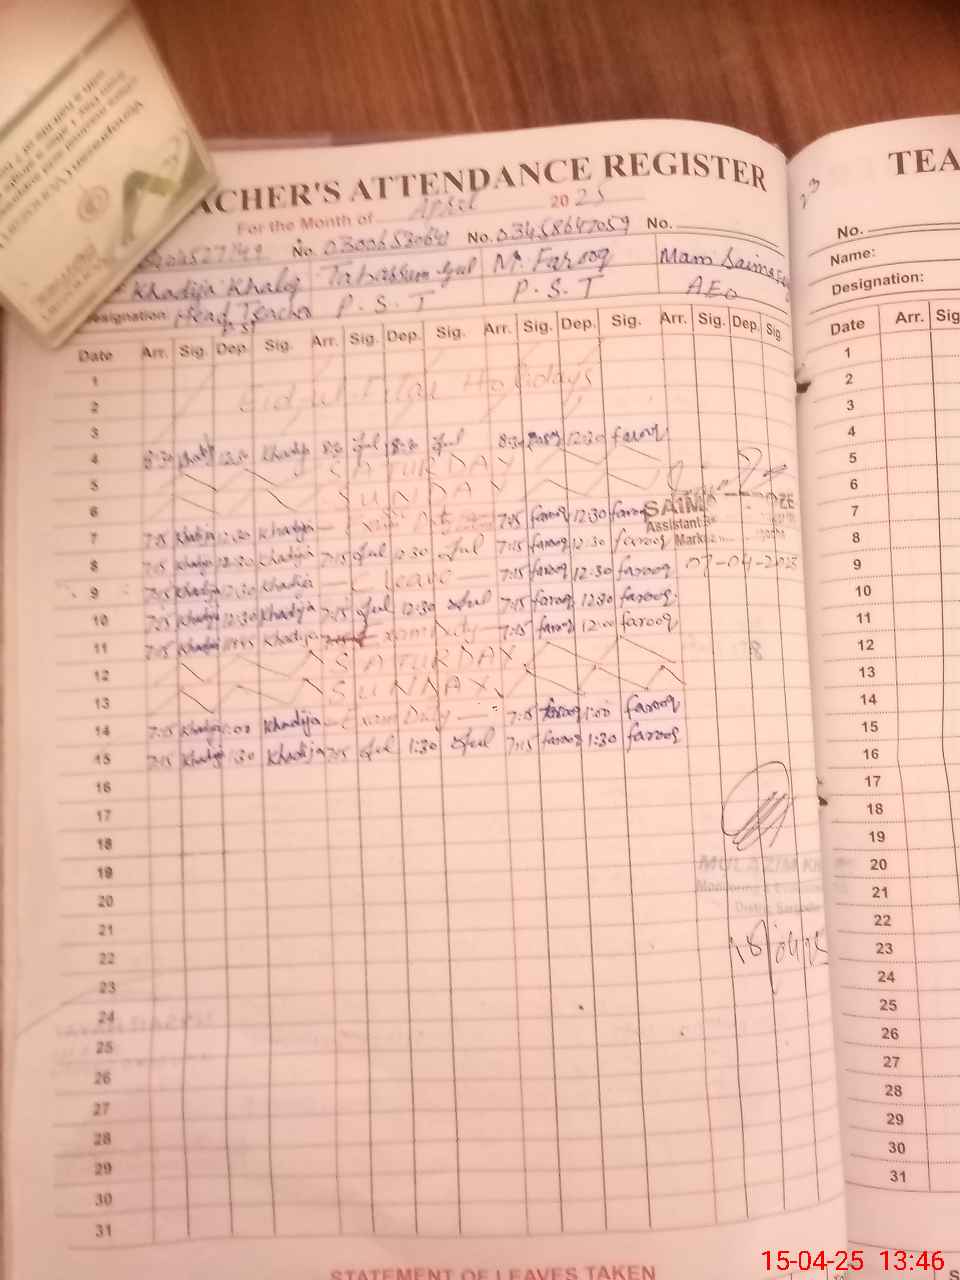 TEACHER'S ATTENDANCE REGISTER
For the Month of April 2025
No. 03006530641 No. 03458647059 No.
Khadija Khaliq Tabassum Gul M. Farooq Mam Saima
Designation: Head Teacher P.S.T P.S.T AEO
P.ST
Date Arr. Sig. Dep. Sig. Arr. Sig. Dep. Sig. Arr. Sig. Dep. Sig. Arr. Sig. Dep. Sig.
1
2 Eid-ul-Fitar Holidays
3
4 8:30 12:30 Khadija 8:30 Gul Gul 8:30 12:30 farooq
5 SATURDAY
6 SUNDAY
7 7:15 Khadija 12:30 Khadija 7:15 farooq 12:30 farooq
8 7:15 Khadija 12:30 Khadija 7:15 Gul 12:30 Gul 7:15 farooq 12:30 farooq
9 7:15 Khadija 12:30 Khadija C leave 7:15 farooq 12:30 farooq
10 7:15 Khadija 12:30 Khadija 7:15 Gul 12:30 Gul 7:15 farooq 12:30 farooq
11 7:15 Khadija Khadija Exam Duty 7:15 farooq 12:00 farooq
12 SATURDAY
13 SUNDAY
14 7:15 Khadija 1:00 Khadija Exam Duty 7:15 farooq 1:00 farooq
15 7:15 Khadija 1:30 Khadija 7:15 Gul 1:30 Gul 7:15 farooq 1:30 farooq
16
17
18
19
20
21
22
23
24
25
26
27
28
29
30
31
SAIMA
Assistant
07-04-2025
MULAZIM
STATEMENT OF LEAVES TAKEN
TEA
No.
Name:
Designation:
Date Arr. Sig
1
2
3
4
5
6
7
8
9
10
11
12
13
14
15
16
17
18
19
20
21
22
23
24
25
26
27
28
29
30
31
15-04-25 13:46